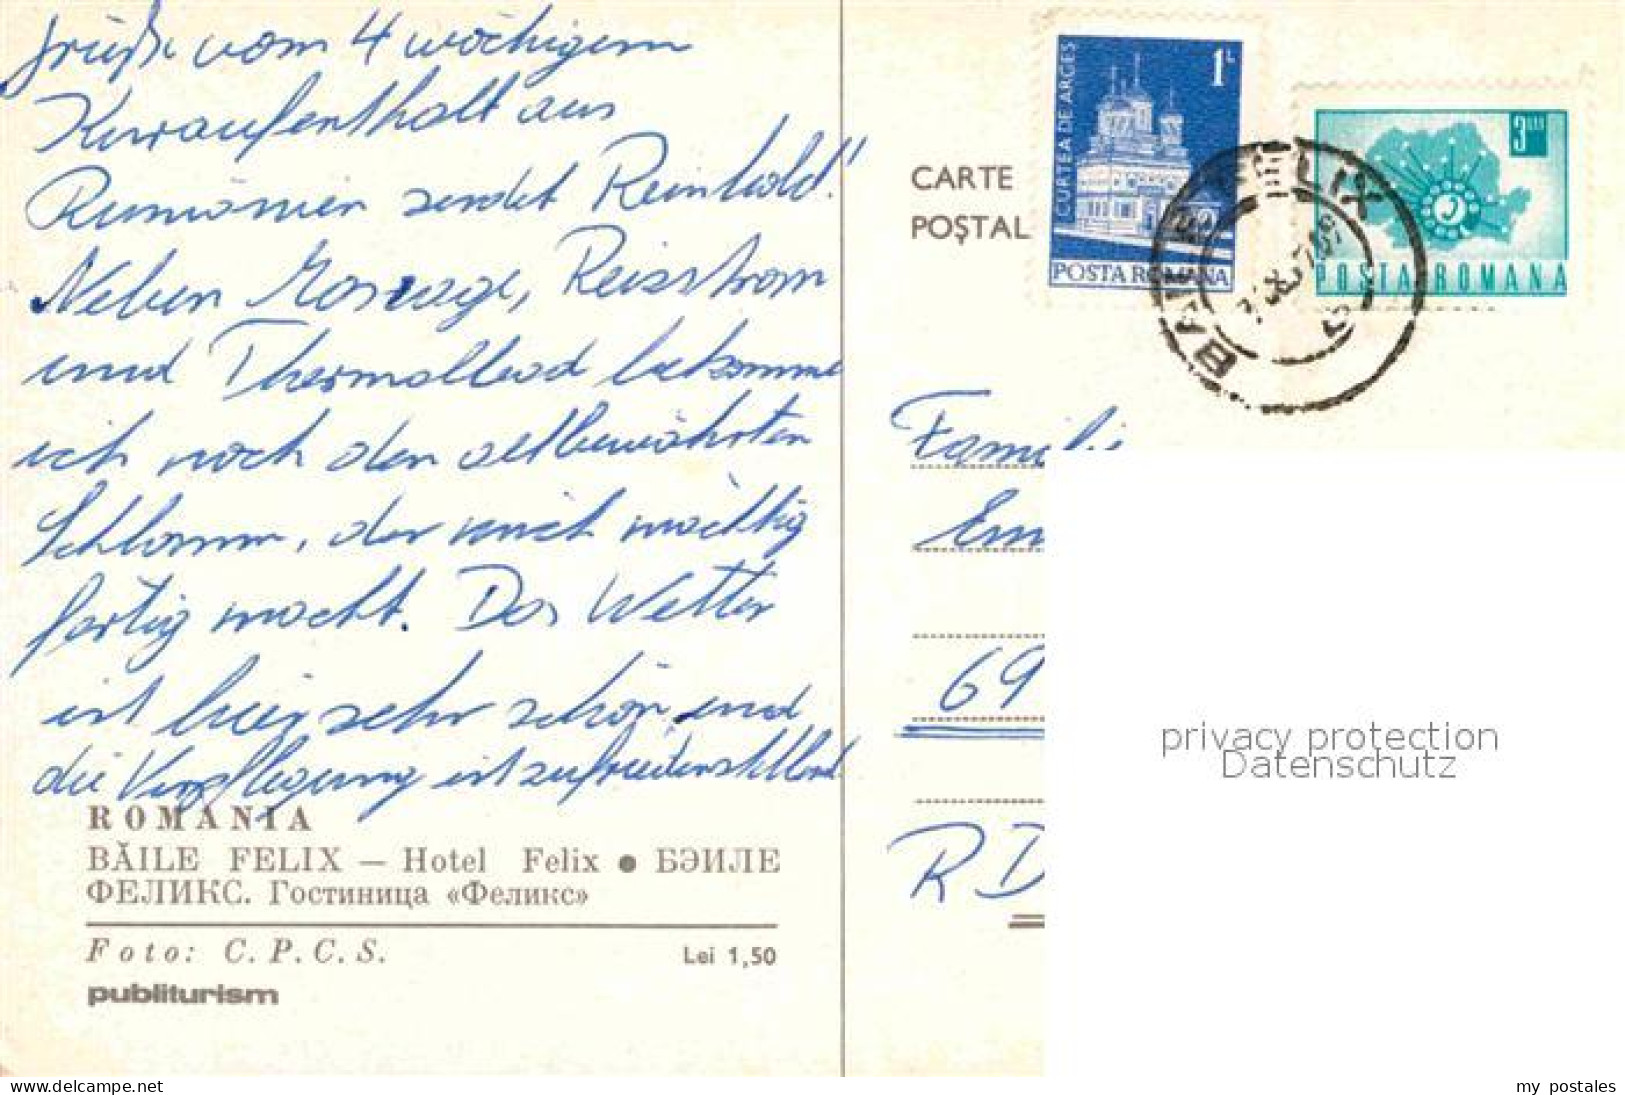 Grüße vom 4 wöchigem
Kuraufenthalt aus
Rumänien sendet Reinhold!
Neben Massage, Reizstrom
und Thermalbad bekomme
ich noch den altbewährten
Schlamm, der mich mächtig
fertig macht. Das Wetter
ist hier sehr schön und
die Verpflegung ist zufriedenstellend
ROMÂNIA
BĂILE FELIX — Hotel Felix ● БЭИЛЕ
ФЕЛИКС. Гостиница «Феликс»
Foto: C.P.C.S.
Lei 1,50
publiturism
CARTE
POȘTAL
CURTEA DE ARGES
1 L
POSTA ROMANA
3 LEI
POSTA ROMANA
BAILE FELIX
Famili
Em
69
RD
privacy protection
Datenschutz
www.delcampe.net
my postales